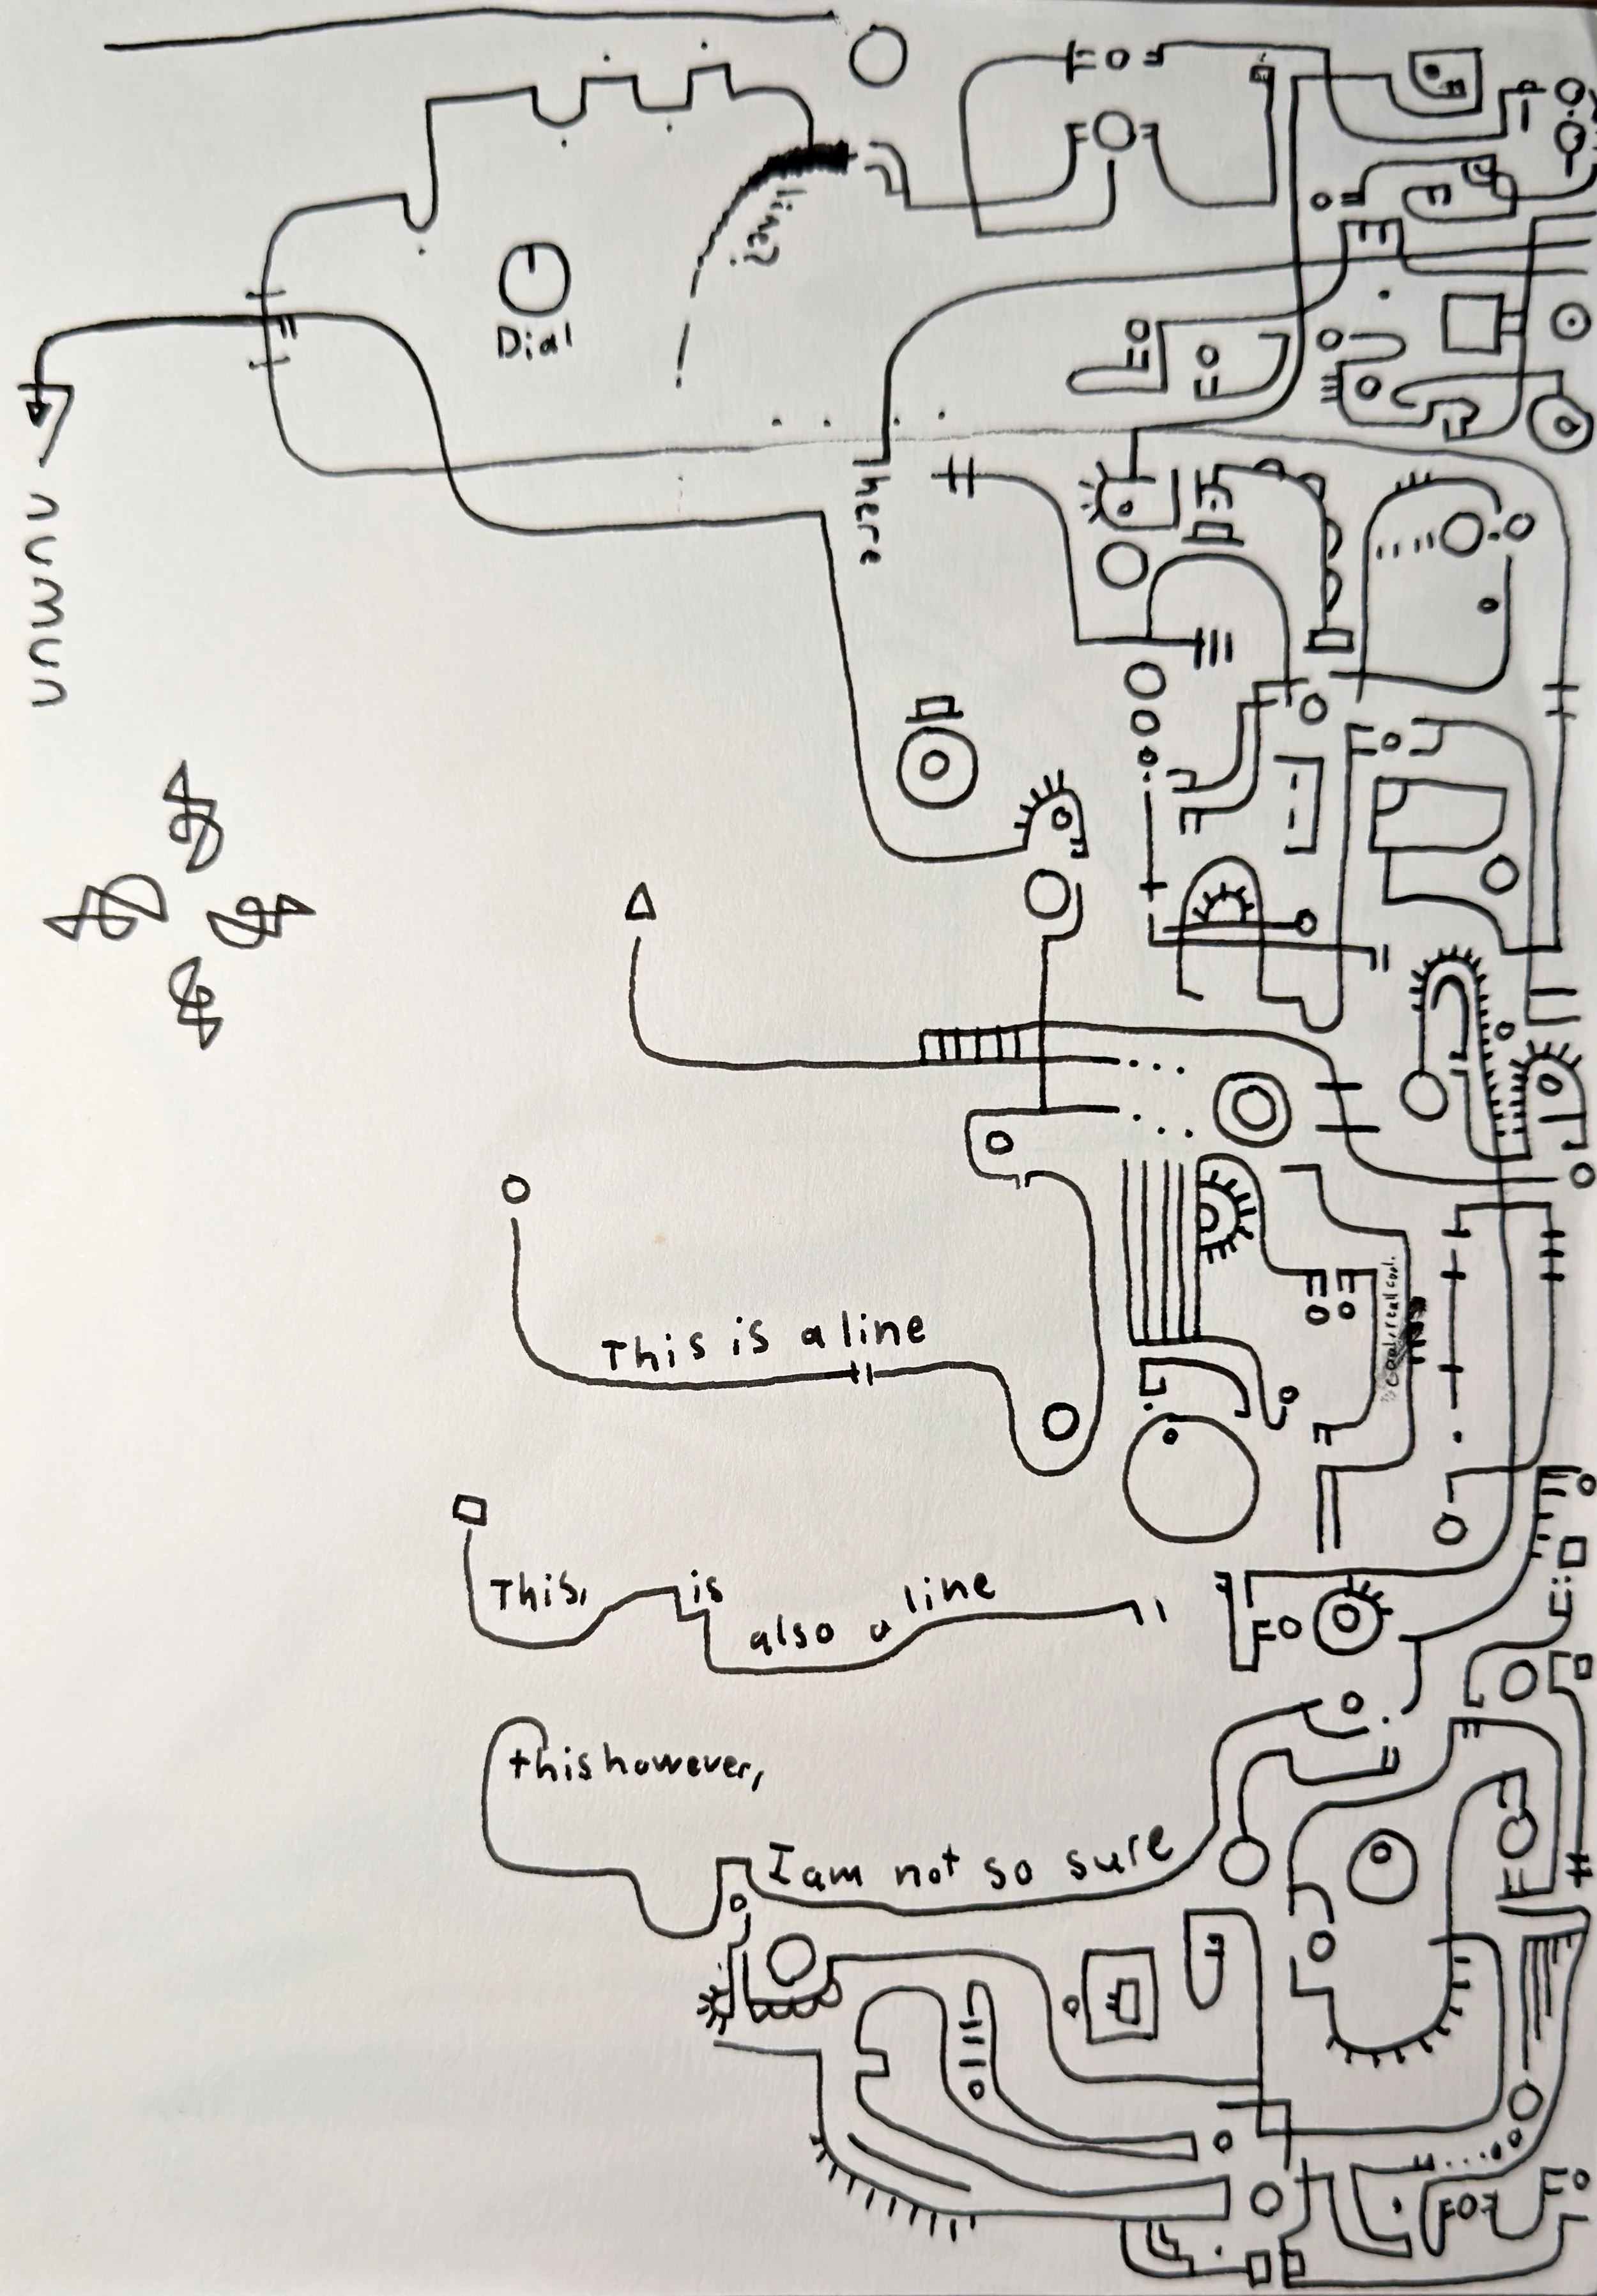 line?
Dial
here
This is a line
This, is also a line
this however,
I am not so sure